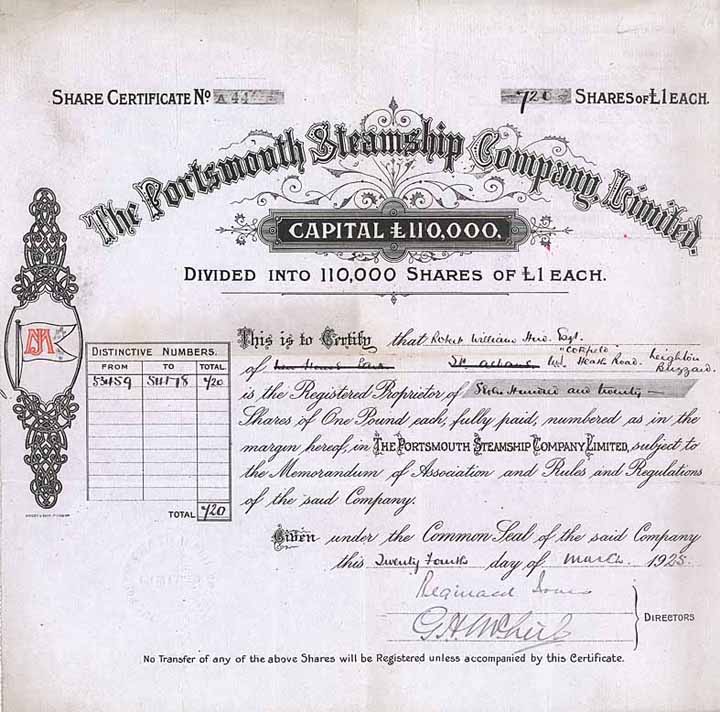 SHARE CERTIFICATE No A 44
720 SHARES OF £1 EACH.
The Portsmouth Steamship Company, Limited.
CAPITAL £110,000.
DIVIDED INTO 110,000 SHARES OF £1 EACH.
This is to Certify that Robert William Esqr.
of Heath Road. Leighton Buzzard.
is the Registered Proprietor of Seven Hundred and twenty
Shares of One Pound each, fully paid, numbered as in the
margin hereof, in THE PORTSMOUTH STEAMSHIP COMPANY LIMITED, subject to
the Memorandum of Association and Rules and Regulations
of the said Company.
DISTINCTIVE NUMBERS.
FROM TO TOTAL
720
TOTAL 720
Given under the Common Seal of the said Company
this Twenty Fourth day of March 1925.
Reginald
DIRECTORS
No Transfer of any of the above Shares will be Registered unless accompanied by this Certificate.